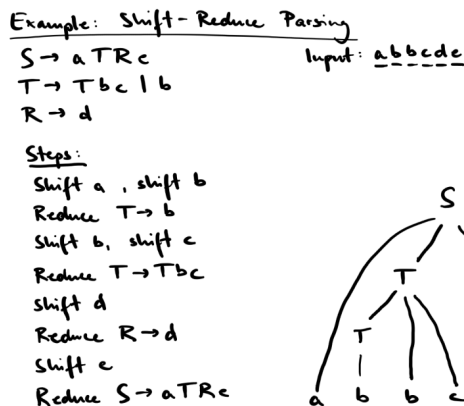 Example: Shift-Reduce Parsing
S → aTRe
Input: abbcde
T → Tbc | b
R → d
Steps:
Shift a, shift b
Reduce T → b
Shift b, shift c
Reduce T → Tbc
Shift d
Reduce R → d
Shift e
Reduce S → aTRe
S
T
T
a b b c